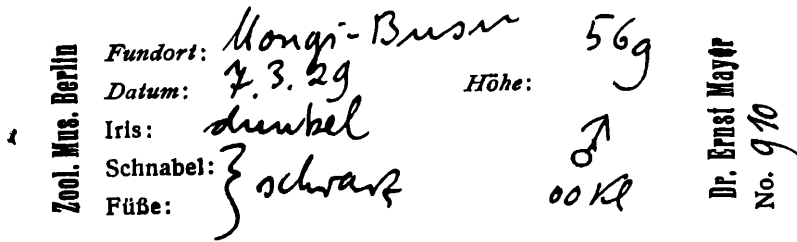 Zool. Mus. Berlin
Fundort: Mongi-Busu 56g
Datum: 7.3.29 Höhe:
Iris: dunkel ♂
Schnabel: } schwarz
Füße: oo Kl
Dr. Ernst Mayr
No. 910